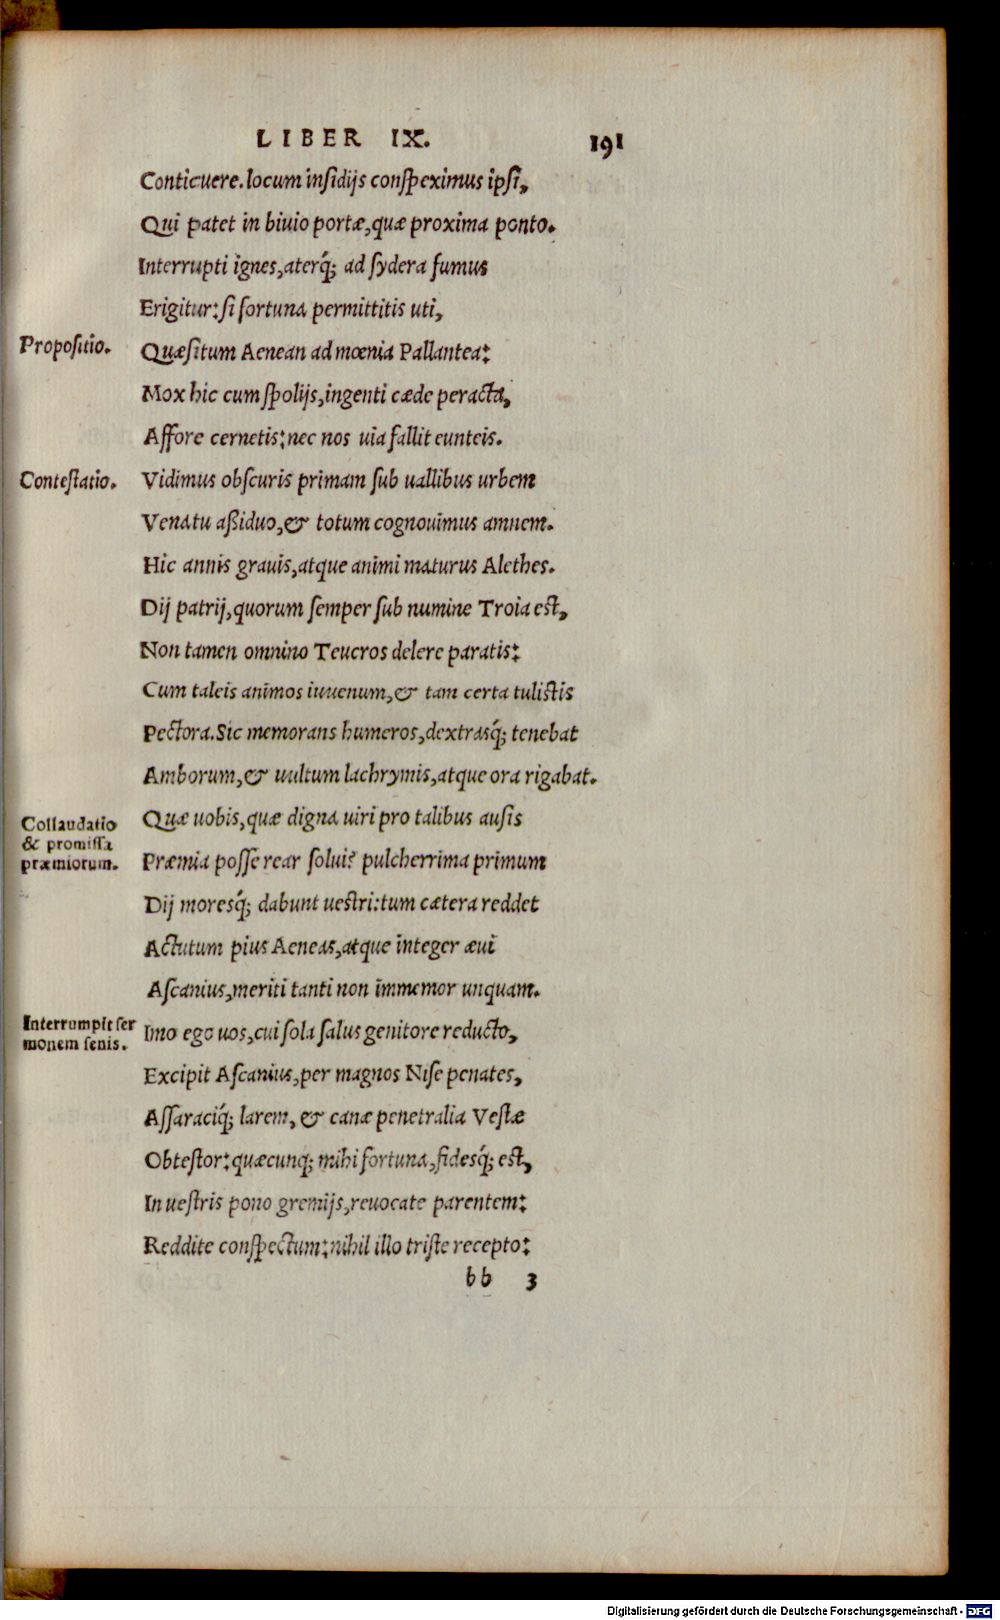 LIBER IX. 191
Conticuere.locum insidijs conspeximus ipsi,
Qui patet in biuio portæ,quæ proxima ponto.
Interrupti ignes,aterq́; ad sydera fumus
Erigitur:si fortuna permittitis uti,
Propositio.
Quæsitum Aenean ad mœnia Pallantea:
Mox hic cum spolijs,ingenti cæde peracta,
Affore cernetis:nec nos uia fallit eunteis.
Contestatio.
Vidimus obscuris primam sub uallibus urbem
Venatu aßiduo,& totum cognouimus amnem.
Hic annis grauis,atque animi maturus Alethes.
Dij patrij,quorum semper sub numine Troia est,
Non tamen omnino Teucros delere paratis:
Cum taleis animos iuuenum,& tam certa tulistis
Pectora.Sic memorans humeros,dextrasq́; tenebat
Amborum,& uultum lachrymis,atque ora rigabat.
Collaudatio
& promissa
præmiorum.
Quæ uobis,quæ digna uiri pro talibus ausis
Præmia posse rear solui? pulcherrima primum
Dij moresq́; dabunt uestri:tum cætera reddet
Actutum pius Aeneas,atque integer æui
Ascanius,meriti tanti non immemor unquam.
Interrumpit ser
monem senis.
Imo ego uos,cui sola salus genitore reducto,
Excipit Ascanius,per magnos Nise penates,
Assaraciq́; larem, & canæ penetralia Vestæ
Obtestor:quæcunq; mihi fortuna,fidesq́; est,
In uestris pono gremijs,reuocate parentem:
Reddite conspectum:nihil illo triste recepto:
bb 3
Digitalisierung gefördert durch die Deutsche Forschungsgemeinschaft - DFG